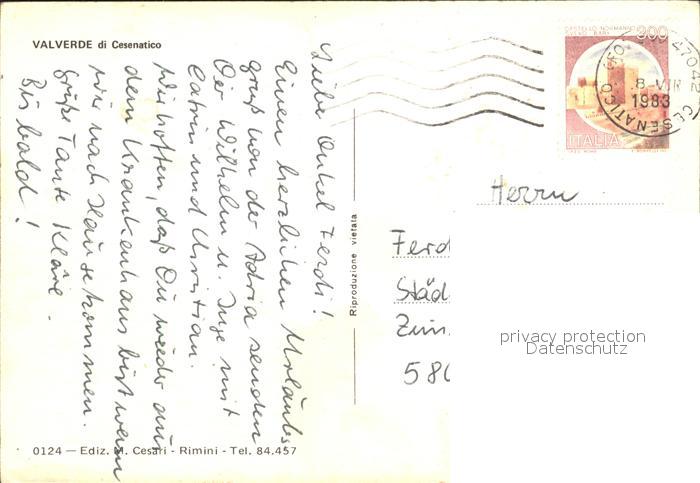 VALVERDE di Cesenatico
Liebe Onkel Ferdi!
Einen herzlichen Urlaubs
gruß von der Adria senden
Dir Wilhelm u. Inge mit
Catrin und Christian.
Wir hoffen, daß Du wieder aus
dem Krankenhaus bist wenn
wir nach Hause kommen.
Grüße Tante Kläre.
Bis bald!
0124 — Ediz. M. Cesari - Rimini - Tel. 84.457
Riproduzione vietata
CASTELLO NORMANNO
SVEVO BARI
300
ITALIA
CESENATICO
1983
Herrn
Ferd
Städ
Zim
580
privacy protection
Datenschutz